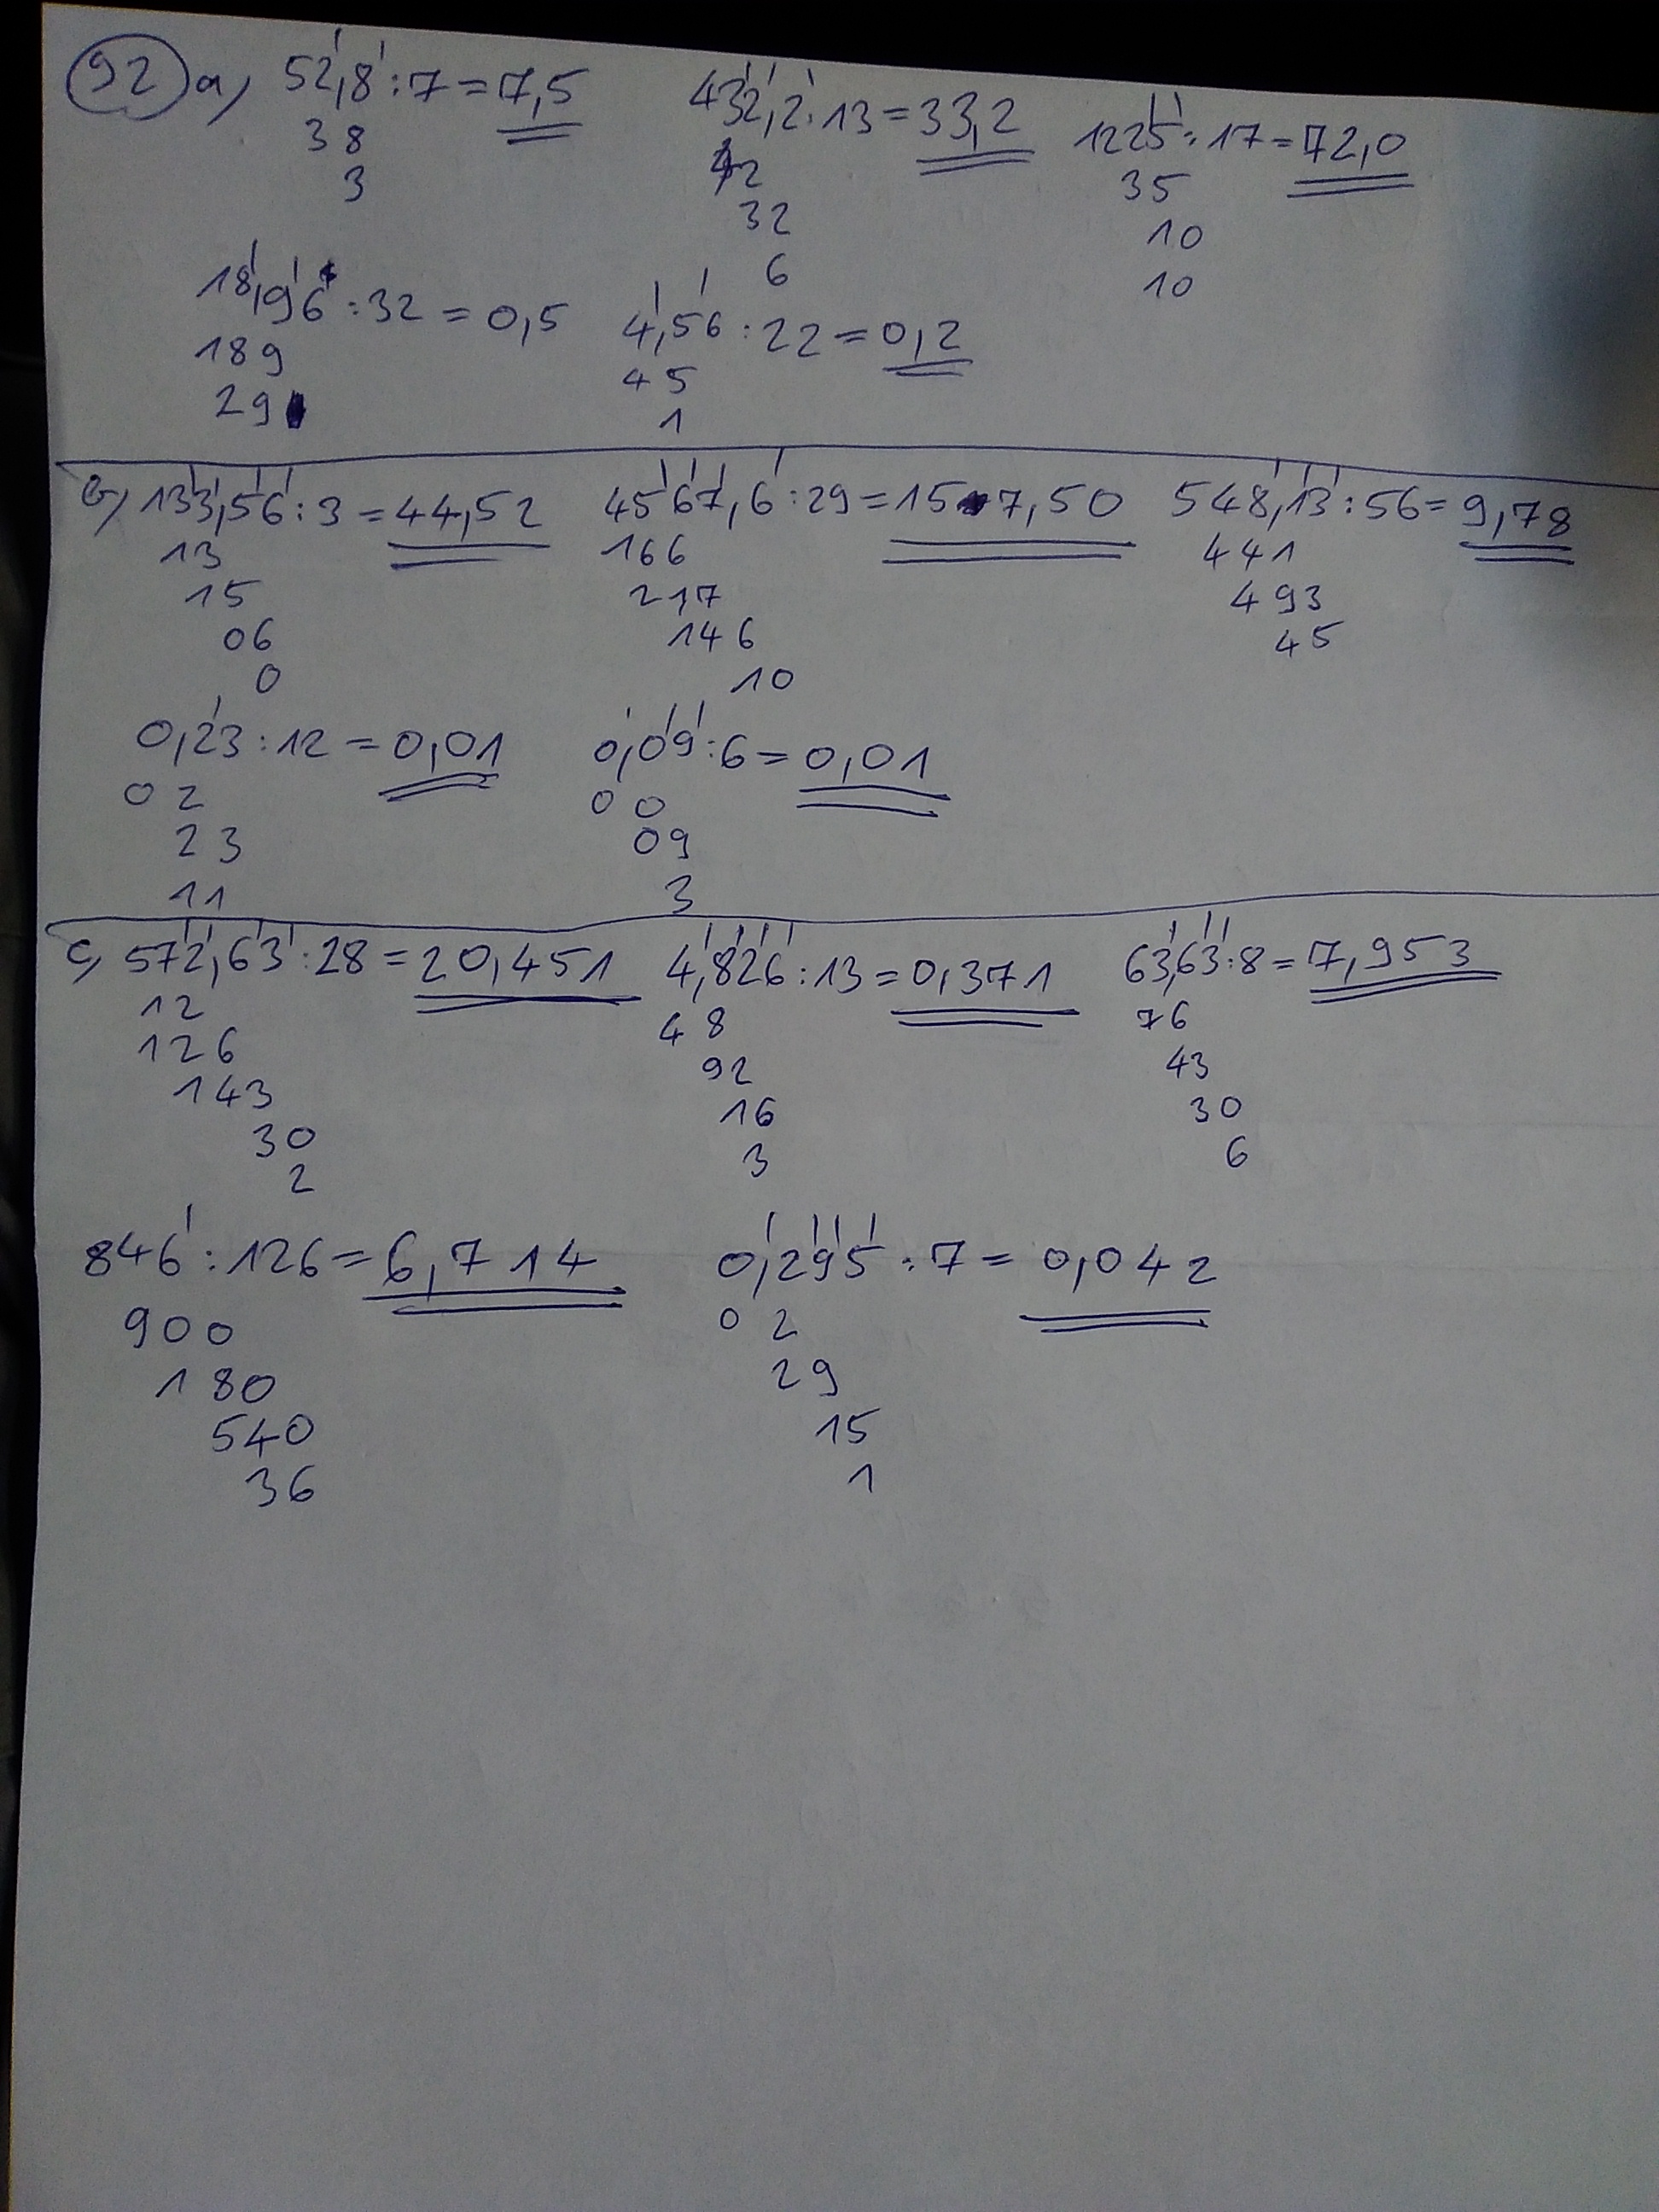 92 a) 52,8 : 7 = 7,5 432,2 : 13 = 33,2 1225 : 17 = 72,0
38 42 35
3 32 10
6 10
18,96 : 32 = 0,5 4,56 : 22 = 0,2
189 45
29 1
b) 133,56 : 3 = 44,52 4567,6 : 29 = 157,50 548,13 : 56 = 9,78
13 166 441
15 217 493
06 146 45
0 10
0,23 : 12 = 0,01 0,09 : 6 = 0,01
02 00
23 09
11 3
c) 572,63 : 28 = 20,451 4,826 : 13 = 0,371 63,63 : 8 = 7,953
12 48 76
126 92 43
143 16 30
30 3 6
2
846 : 126 = 6,714 0,295 : 7 = 0,042
900 02
180 29
540 15
36 1